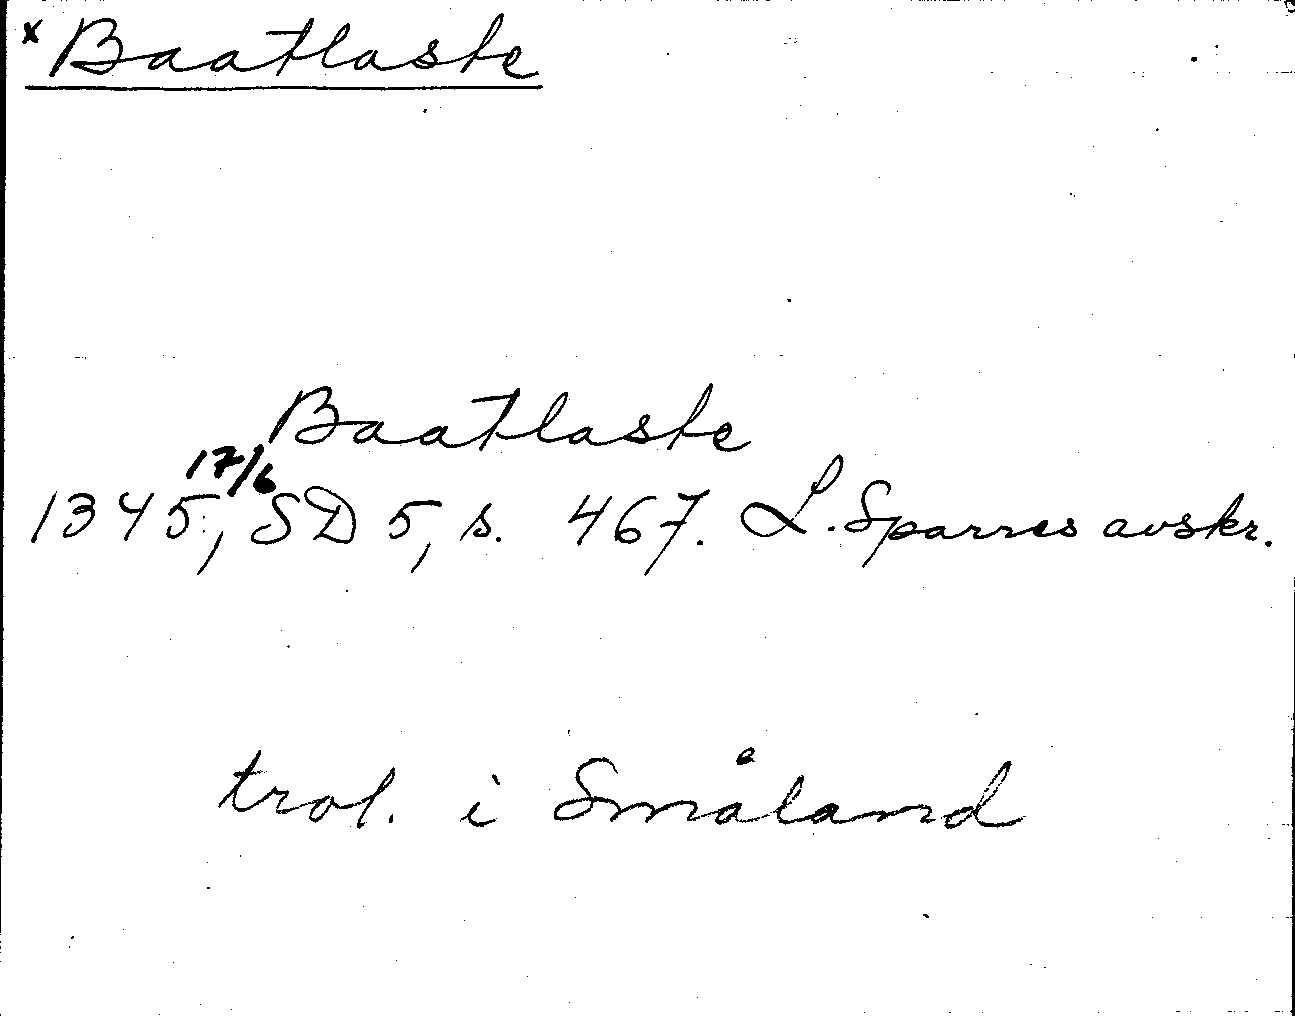 x Baatlaste
Baatlaste
17/6
1345, SD 5, s. 467. L. Sparres avskr.
trol. i Småland